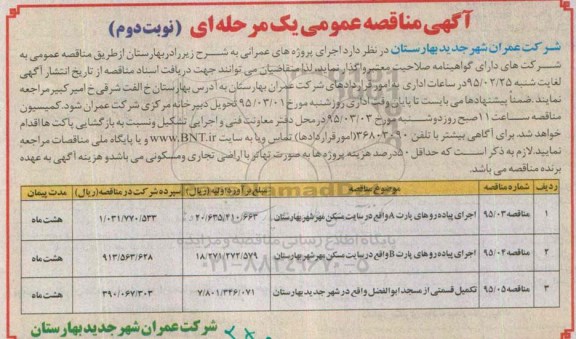 آگهی مناقصه عمومی یک مرحله ای (نوبت دوم)
شرکت عمران شهر جدید بهارستان در نظر دارد اجرای پروژه های عمرانی به شرح زیر را در بهارستان از طریق مناقصه عمومی به
شرکت های دارای گواهینامه صلاحیت معتبر واگذار نماید. لذا متقاضیان می توانند جهت دریافت اسناد مناقصه از تاریخ انتشار آگهی
لغایت شنبه ۹۵/۰۲/۲۵ در ساعات اداری به امور قراردادهای شرکت عمران بهارستان به آدرس بهارستان خ الفت شرقی خ امیرکبیر مراجعه
نمایند. ضمناً پیشنهادها می بایست تا پایان وقت اداری روز شنبه مورخ ۹۵/۰۳/۰۱ تحویل دبیرخانه مرکزی شرکت عمران شود. کمیسیون
مناقصه ساعت ۱۱ صبح روز دوشنبه مورخ ۹۵/۰۳/۰۳ در محل دفتر معاونت فنی و اجرایی تشکیل و نسبت به بازگشایی پاکت ها اقدام
خواهد شد. برای آگهی بیشتر با تلفن ۹۰-۳۶۸۰۳۰ (امور قراردادها) تماس و یا به سایت www.BNT.ir و یا پایگاه ملی مناقصات مراجعه
نمایید. لازم به ذکر است که حداقل ۵۰ درصد هزینه پروژه ها به صورت تهاتر با اراضی تجاری و مسکونی می باشد و هزینه آگهی به عهده
برنده مناقصه می باشد.
ردیف شماره مناقصه موضوع مناقصه مبلغ برآورد اولیه (ریال) سپرده شرکت در مناقصه (ریال) مدت پیمان
۱ مناقصه ۹۵/۰۳ اجرای پیاده روهای پارت ۸ واقع در سایت مسکن مهر شهر بهارستان ۲۰/۶۳۵/۴۱۰/۶۶۳ ۱/۰۳۱/۷۷۰/۵۳۳ هشت ماه
۲ مناقصه ۹۵/۰۴ اجرای پیاده روهای پارت B واقع در سایت مسکن مهر شهر بهارستان ۱۸/۲۷۱/۲۷۲/۵۷۹ ۹۱۳/۵۶۳/۶۲۸ هشت ماه
۳ مناقصه ۹۵/۰۵ تکمیل قسمتی از مسجد ابوالفضل واقع در شهر جدید بهارستان ۷/۸۰۱/۳۴۶/۰۷۱ ۳۹۰/۰۶۷/۳۰۳ هشت ماه
پایگاه اطلاع رسانی مناقصه و مزایده
۰۲۱-۸۸۳۴۹۶۷۰-۵
شرکت عمران شهر جدید بهارستان